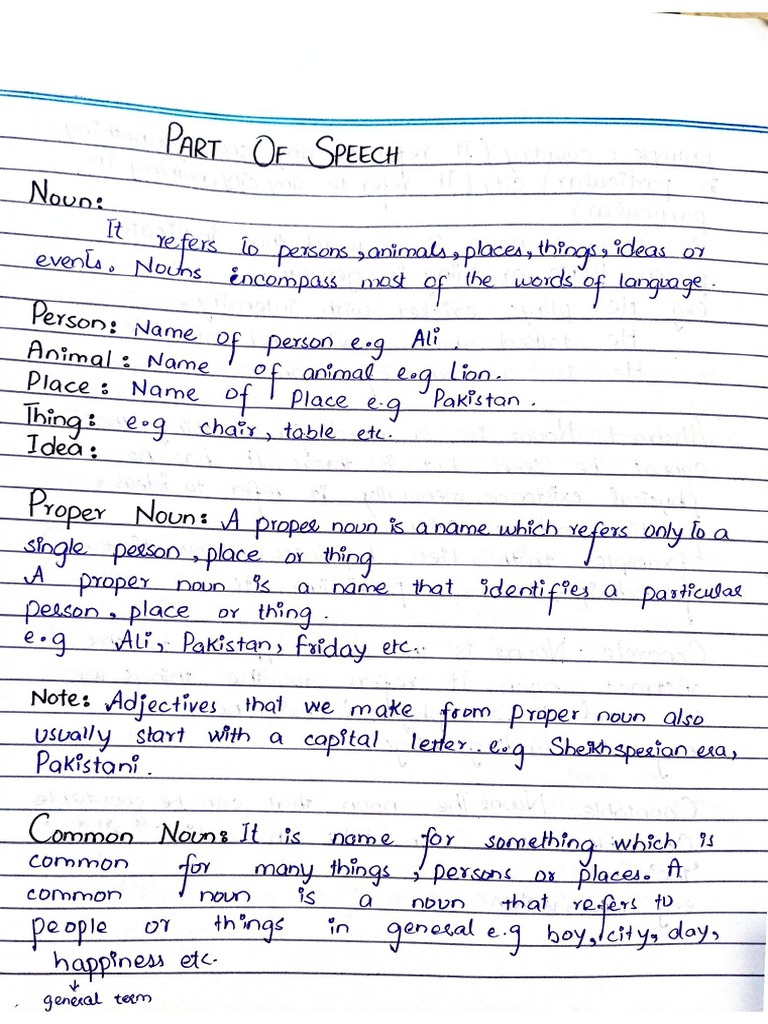 PART OF SPEECH
Noun:
It refers to persons, animals, places, things, ideas or
events. Nouns encompass most of the words of language.
Person: Name of person e.g Ali.
Animal: Name of animal e.g Lion.
Place: Name of Place e.g Pakistan.
Thing: e.g chair, table etc.
Idea:
Proper Noun: A proper noun is a name which refers only to a
single person, place or thing
A proper noun is a name that identifies a particular
person, place or thing.
e.g Ali, Pakistan, Friday etc.
Note: Adjectives that we make from proper noun also
usually start with a capital letter. e.g Sheikhsperian era,
Pakistani.
Common Noun: It is name for something which is
common for many things, persons or places. A
common noun is a noun that refers to
people or things in general e.g boy, city, day,
happiness etc.
↓
general term